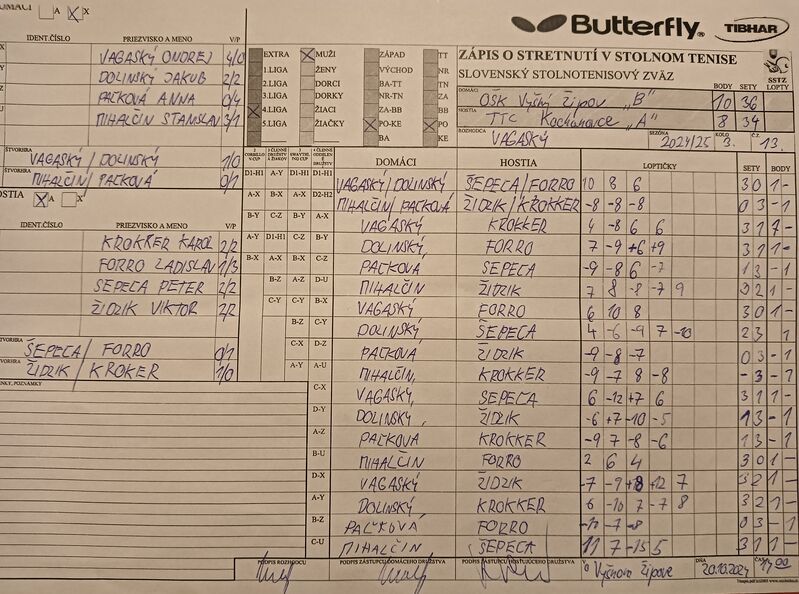 DOMÁCI A X
Butterfly TIBHAR
IDENT.ČÍSLO PRIEZVISKO A MENO V/P
VAGASKÝ ONDREJ 4/0
DOLINSKÝ JAKUB 2/2
PAČKOVÁ ANNA 0/4
MIHALČIN STANISLAV 3/1
ŠTVORHRA
VAGASKÝ / DOLINSKÝ 1/0
MIHALČIN / PAČKOVÁ 0/1
HOSTIA A X
IDENT.ČÍSLO PRIEZVISKO A MENO V/P
KROKKER KAROL 2/2
FORRO LADISLAV 1/3
ŠEPEĽA PETER 2/2
ŽIDZIK VIKTOR 2/2
ŠEPEĽA / FORRO 0/1
ŠTVORHRA
ŽIDZIK / KROKER 1/0
POZNÁMKY
EXTRA MUŽI ZÁPAD TT
1.LIGA ŽENY VÝCHOD NR
2.LIGA DORCI BA-TT TN
3.LIGA DORKY NR-TN ZA
4.LIGA ŽIACI ZA-BB BB
5.LIGA ŽIAČKY PO-KE PO
BA KE
ZÁPIS O STRETNUTÍ V STOLNOM TENISE
SLOVENSKÝ STOLNOTENISOVÝ ZVÄZ
SSTZ
LIGA
DOMÁCI BODY SETY
OŠK Vyšný Žipov „B" 10 36
HOSTIA
TTC Kochanovce „A" 8 34
ROZHODCA SEZÓNA KOLO Č.Z.
VAGASKÝ 2024/25 3. 13.
DOMÁCI HOSTIA LOPTIČKY SETY BODY
D1-H1 A-Y D1-H1 D1-H1 VAGASKÝ / DOLINSKÝ ŠEPEĽA / FORRO 10 8 6 3 0 1 -
A-X B-X A-X D2-H2 MIHALČIN / PAČKOVÁ ŽIDZIK / KROKKER -8 -8 -8 0 3 - 1
B-Y C-Z B-Y A-X VAGASKÝ KROKKER 4 -8 6 6 3 1 1 -
A-Y D1-H1 C-Z B-Y DOLINSKÝ FORRO 7 -9 +6 +9 3 1 1 -
B-X A-X A-X C-Z PAČKOVÁ ŠEPEĽA -9 -8 6 -7 1 3 - 1
B-Z A-Z D-U MIHALČIN ŽIDZIK 7 8 -8 -7 9 3 2 1 -
C-Y C-Y B-X VAGASKÝ FORRO 6 10 8 3 0 1 -
B-Z C-Y DOLINSKÝ ŠEPEĽA 4 -6 -9 7 -10 2 3 - 1
C-X D-Z PAČKOVÁ ŽIDZIK -9 -8 -7 0 3 - 1
A-Y A-U MIHALČIN KROKKER -9 -7 8 -8 - 3 - 1
C-X VAGASKÝ ŠEPEĽA 6 -12 +7 6 3 1 1 -
D-Y DOLINSKÝ ŽIDZIK -6 +7 -10 -5 1 3 - 1
A-Z PAČKOVÁ KROKKER -9 7 -8 -6 1 3 - 1
B-U MIHALČIN FORRO 2 6 4 3 0 1 -
D-X VAGASKÝ ŽIDZIK -7 -9 +8 +12 7 3 2 1 -
A-Y DOLINSKÝ KROKKER 6 -10 7 -7 8 3 2 1 -
B-Z PAČKOVÁ FORRO -10 -7 -8 0 3 - 1
C-U MIHALČIN ŠEPEĽA 11 7 -15 5 3 1 1 -
PODPIS ROZHODCU PODPIS ZÁSTUPCU DOMÁCEHO DRUŽSTVA PODPIS ZÁSTUPCU HOSŤUJÚCEHO DRUŽSTVA V Vyšnom Žipove DŇA 20.10.2024 ČAS 14,00